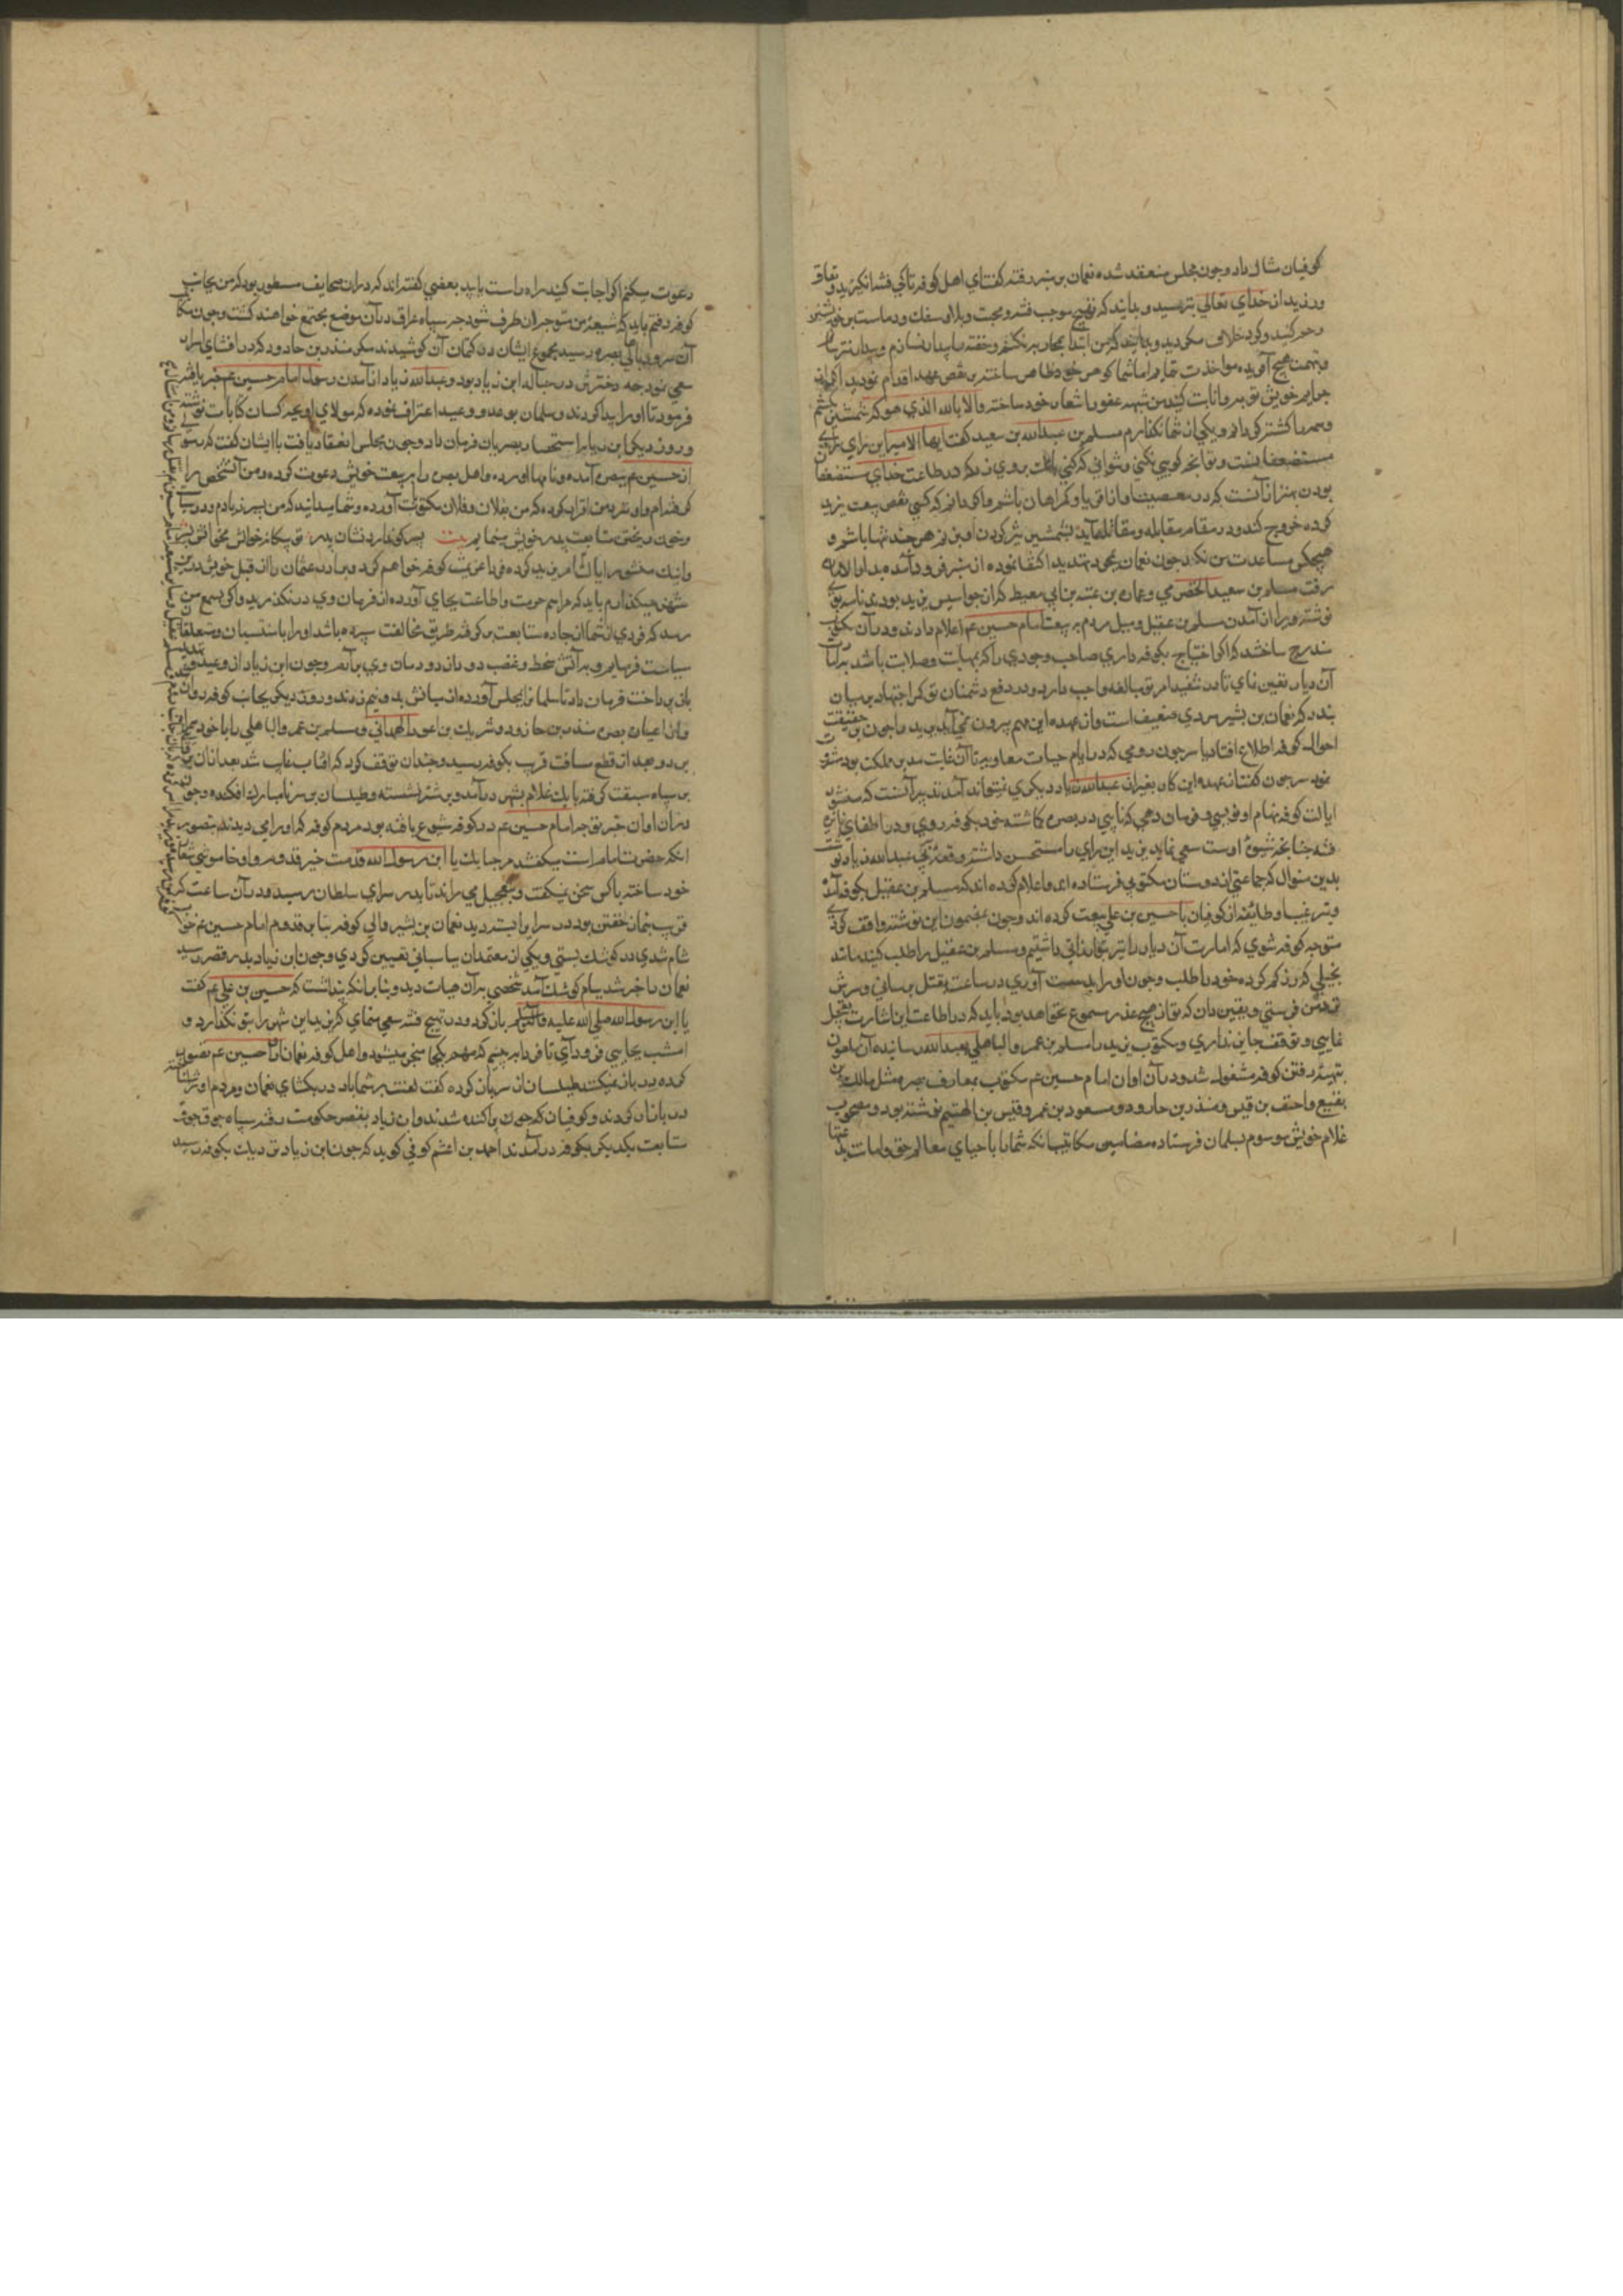 کوفیان مثال داد و چون مجلس منعقد شد نعمان بر منبر رفته گفت ای اهل کوفه تا کی فتنه انگیزید و نفاق
ورزید از خدای تعالی بترسید و بدانید که موجب فتنه و محنت و بلا و سفک و دماست بر خود
و رحم کنید و بدانید که من ابتدا بمحاربه نکنم و خفته را بیدار نسازم و بیدار نترسانم
و بتهمت هیچ آفریده مواخذت ننمایم اما شما خود ظاهر ساخته بر نقض عهد اقدام نمودید اگر از
جرایم خویش توبه و انابت کنید من شیوه عفو را شعار خود ساخته والا بالله الذی هو که بشمشیر
همه را کشته گردانم و یکی از شما نگذارم مسلم بن عبدالله بن سعید گفت ایها الامیر این رای
مستضعفانست و تو آنچه گویی نکنی و نتوانی کرد نعمان که در طاعت خدای مستضعف
بودن بهتر از آنست که در معصیت او از اقویا و گمراهان باشم و اگر دانم که کسی نقض بیعت یزید
کرده خروج کند و در مقام مقابله و مقاتله آید بشمشیر تیز گردن او بزنم هر چند تنها باشم و
هیچکس مساعدت من نکند چون نعمان بمجرد تهدید اکتفا نموده از منبر فرود آمده بدارالاماره
رفت مسلم بن سعید الحضرمی و عماره بن عتبه بن ابی معیط که از جواسیس یزید بودند نامه بوی
نوشته ویرا از آمدن مسلم بن عقیل و میل مردم به بیعت امام حسین عم اعلام دادند و در آن مکتوب
مندرج ساختند که اگر احتیاج بکوفه داری صاحب وجودی را که بمهابت و صلابت باشد بامارت
آن دیار تعیین نمای تا در تنفیذ امر تو مبالغه واجب دارد و در دفع دشمنان تو کمر اجتهاد بر میان
بندد که نعمان بن بشیر مردی ضعیف است و از عهده این مهم بیرون نمی آید یزید را چون بر حقیقت
احوال کوفه اطلاع افتاد با سرجون رومی که در ایام حیات معاویه تا آن غایت مدبر مملکت بود مشورت
نمود سرجون گفت از عهده این کار بغیر از عبدالله زیاد دیگری نمیتواند آمد تدبیر آنست که منشور
ایالت کوفه بنام او نویسی و فرمان دهی که نایبی در بصره گماشته خود بکوفه رود و در اطفای نایره
فتنه چنانچه شیوه اوست سعی نماید یزید این رای را مستحسن داشته رقعه نزد عبدالله زیاد نوشت
بدین منوال که جماعتی از دوستان مکتوبی فرستاده اند و اعلام کرده اند که مسلم بن عقیل بکوفه آمده
و بترغیب او طائفه از کوفیان با حسین بن علی بیعت کرده اند و چون بمضمون این نوشته واقف گردی
متوجه کوفه شوی که امارت آن دیار را نیز بتو ارزانی داشتیم و مسلم بن عقیل را طلب کنی مانند
بخیلی که زر گم کرده خود را طلب و چون او را بدست آوری در ساعت بقتل رسانی و سرش
نزد من فرستی و یقین دان که تو از هیچ عذر مسموع نخواهد بود باید که در اطاعت این اشارت تعجیل
نمایی و توقف جایز نداری و مکتوب یزید را مسلم بن عمرو الباهلی بعبدالله رسانیده
بتهیه رفتن کوفه مشغول شد و در آن اوان امام حسین عم مکتوب بمعارف بصره مثل مالک بن
مسمع و احنف بن قیس و منذر بن جارود و مسعود بن عمرو و قیس بن الهیثم نوشته بود و مصحوب
غلام خویش موسوم بسلمان فرستاده مضامین مکاتیب آنکه شما را باحیای معالم حق و امات بدعتها
دعوت میکنم اگر اجابت کنید راه راست یابید بعضی گفته اند که در آن صحایف مسطور بود که من بجانب
کوفه رفتم باید که شیعه من متوجه آن طرف شود چه سپاه عراق در آن موضع مجتمع خواهند گشت و چون
آن سرور باهالی بصره رسید مجموع ایشان در کتمان آن کوشیدند مگر منذر بن جارود که در افشای اسرار
سعی نمود چه دخترش در حباله ابن زیاد بود و عبدالله زیاد از آمدن رسول امام حسین عم خبر یافته
فرمود تا او را پیدا کردند و سلمان بوعد و وعید اعتراف نموده که مولای او بچه کسان کتابات نوشته
و روز دیگر ابن زیاد باستحضار بصریان فرمان داد و چون مجلس انعقاد یافت با ایشان گفت که رسول
از حسین عم ببصره آمده و نامها آورده و اهل بصره را به بیعت خویش دعوت کرده و من آن شخص را
گرفته ام و او نزد من اقرار کرده که من بفلان و فلان مکتوبات آورده و شما میدانید که من پسر زیادم و در سیاست
و خون ریختن متابعت پدر خویش مینمایم بیت پسر کو ندارد نشان پدر تو بیگانه خوانش مخوانش پسر
و اینک منشور ایالت کوفه بنام من یزید کرده فردا عزیمت کوفه خواهم کرد و برادر عثمان را از قبل خویش درین
شهر میگذارم باید که مراسم حرمت و اطاعت بجای آورده از فرمان وی در نگذرید و اگر بسمع من
رسد که فردی از شما از جاده متابعت بر گرفته طریق مخالفت سپرده باشد او را با منتسبان و متعلقان
سیاست فرمایم و بر آتش سخط و غضب دود از دودمان وی برآرم و چون ابن زیاد از وعید و تهدید
باز پرداخت فرمان داد تا سلمان را بمجلس آورده از میانش بدو نیم زدند و روز دیگر بجانب کوفه روان
و از اعیان بصره منذر بن جارود و شریک بن اعور الهمدانی و مسلم بن عمرو الباهلی را با خود همراه
برد و بعد از قطع مسافت قریب بکوفه رسید و چندان توقف کرد که آفتاب غایب شد بعد از آن
بر سپاه سبقت گرفته با یک غلام بشهر درآمد و بر شتر نشسته و طیلسان بر سر نامبارک افکنده و چون
در آن اوان خبر توجه امام حسین عم در کوفه شیوع یافته بود مردم کوفه که او را می دیدند بتصور
آنکه حضرت امام است میگفتند مرحبا بک یا ابن رسول الله قدمت خیر قدوم و او خاموشی شعار
خود ساخته با کس سخن نمیگفت و بتعجیل می راند تا بدر سرای سلطان رسید و در آن ساعت که
قریب بنماز خفتن بود در سرای را بسته دید نعمان بن بشیر والی کوفه بنابر قدوم امام حسین عم
شام شدی در کوشک بستی و یکی از معتمدان بپاسبانی تعیین کردی و چون ابن زیاد بدر قصر رسید
نعمان را خبر شد ببام کوشک آمد شخصی بر آن هیات دید و بنابر آنکه پنداشت که حسین بن علی عم گفت
یا ابن رسول الله صلی الله علیه وآله وسلم باز گرد و در تهییج فتنه سعی منمای که یزید این شهر را بتو نگذارد و
امشب بجایی فرود آی تا فردا ببینیم که مهم بکجا منجر میشود و اهل کوفه نعمان را حسین عم تصور
کرده در باز نمیکند طیلسان از سر باز کرده گفت لعنت بر شما باد در بگشای نعمان و مردم او
در باز کردند و کوفیان که چون پراکنده شدند و ابن زیاد بقصر حکومت رفته سپاه جوق جوق
متابعت یکدیگر بکوفه درآمدند احمد بن اعثم کوفی گوید که چون ابن زیاد نزدیک بکوفه رسید